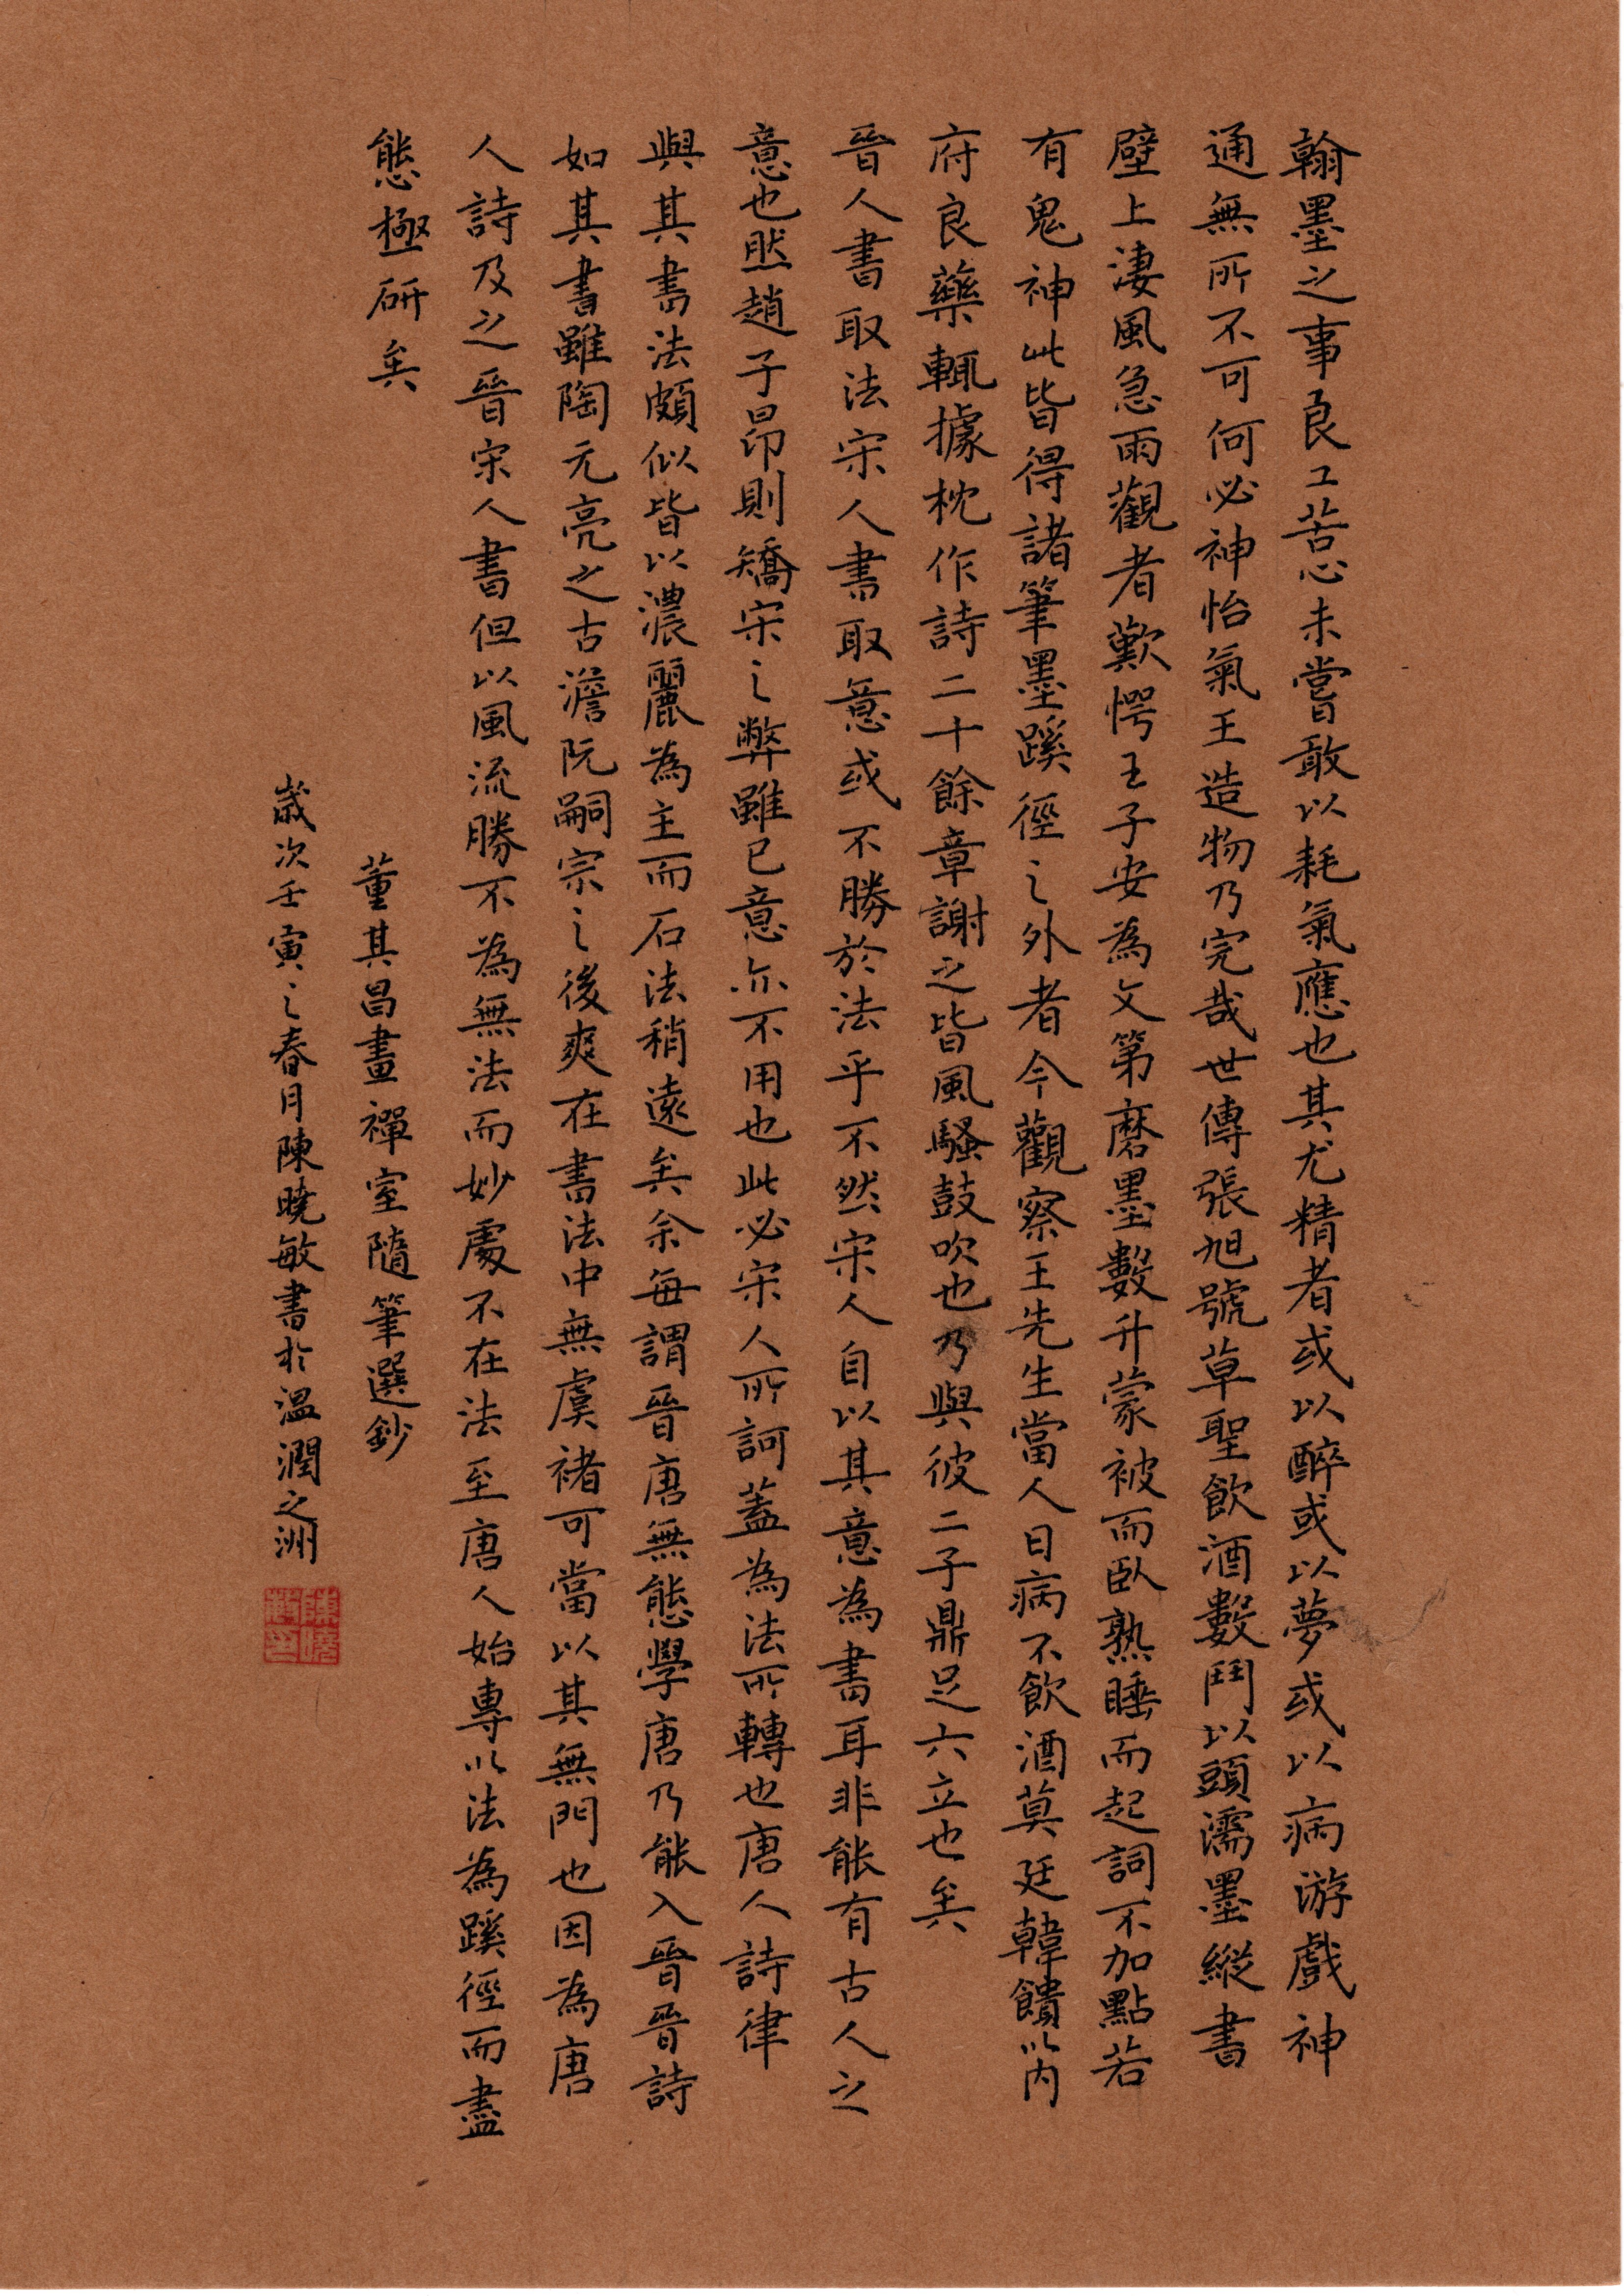 翰墨之事良工苦心未嘗敢以耗氣應也其尤精者或以醉或以夢或以病游戲神
通無所不可何必神怡氣王造物乃完哉世傳張旭號草聖飲酒數鬥以頭濡墨縱書
壁上淒風急雨觀者歎愕王子安為文第磨墨數升蒙被而臥熟睡而起詞不加點若
有鬼神此皆得諸筆墨蹊徑之外者今觀察王先生當人日病不飲酒莫廷韓饋以內
府良藥輒據枕作詩二十餘章謝之皆風騷鼓吹也乃與彼二子鼎足六立也矣
晉人書取法宋人書取意或不勝於法乎不然宋人自以其意為書耳非能有古人之
意也然趙子昂則矯宋之弊雖已意亦不用也此必宋人所訶蓋為法所轉也唐人詩律
與其書法頗似皆以濃麗為主而石法稍遠矣余每謂晉唐無態學唐乃能入晉晉詩
如其書雖陶元亮之古澹阮嗣宗之後爽在書法中無虞褚可當以其無門也因為唐
人詩及之晉宋人書但以風流勝不為無法而妙處不在法至唐人始專以法為蹊徑而盡
態極研矣
董其昌畫禪室隨筆選鈔
歲次壬寅之春月陳曉敏書於溫潤之洲
陳曉敏印